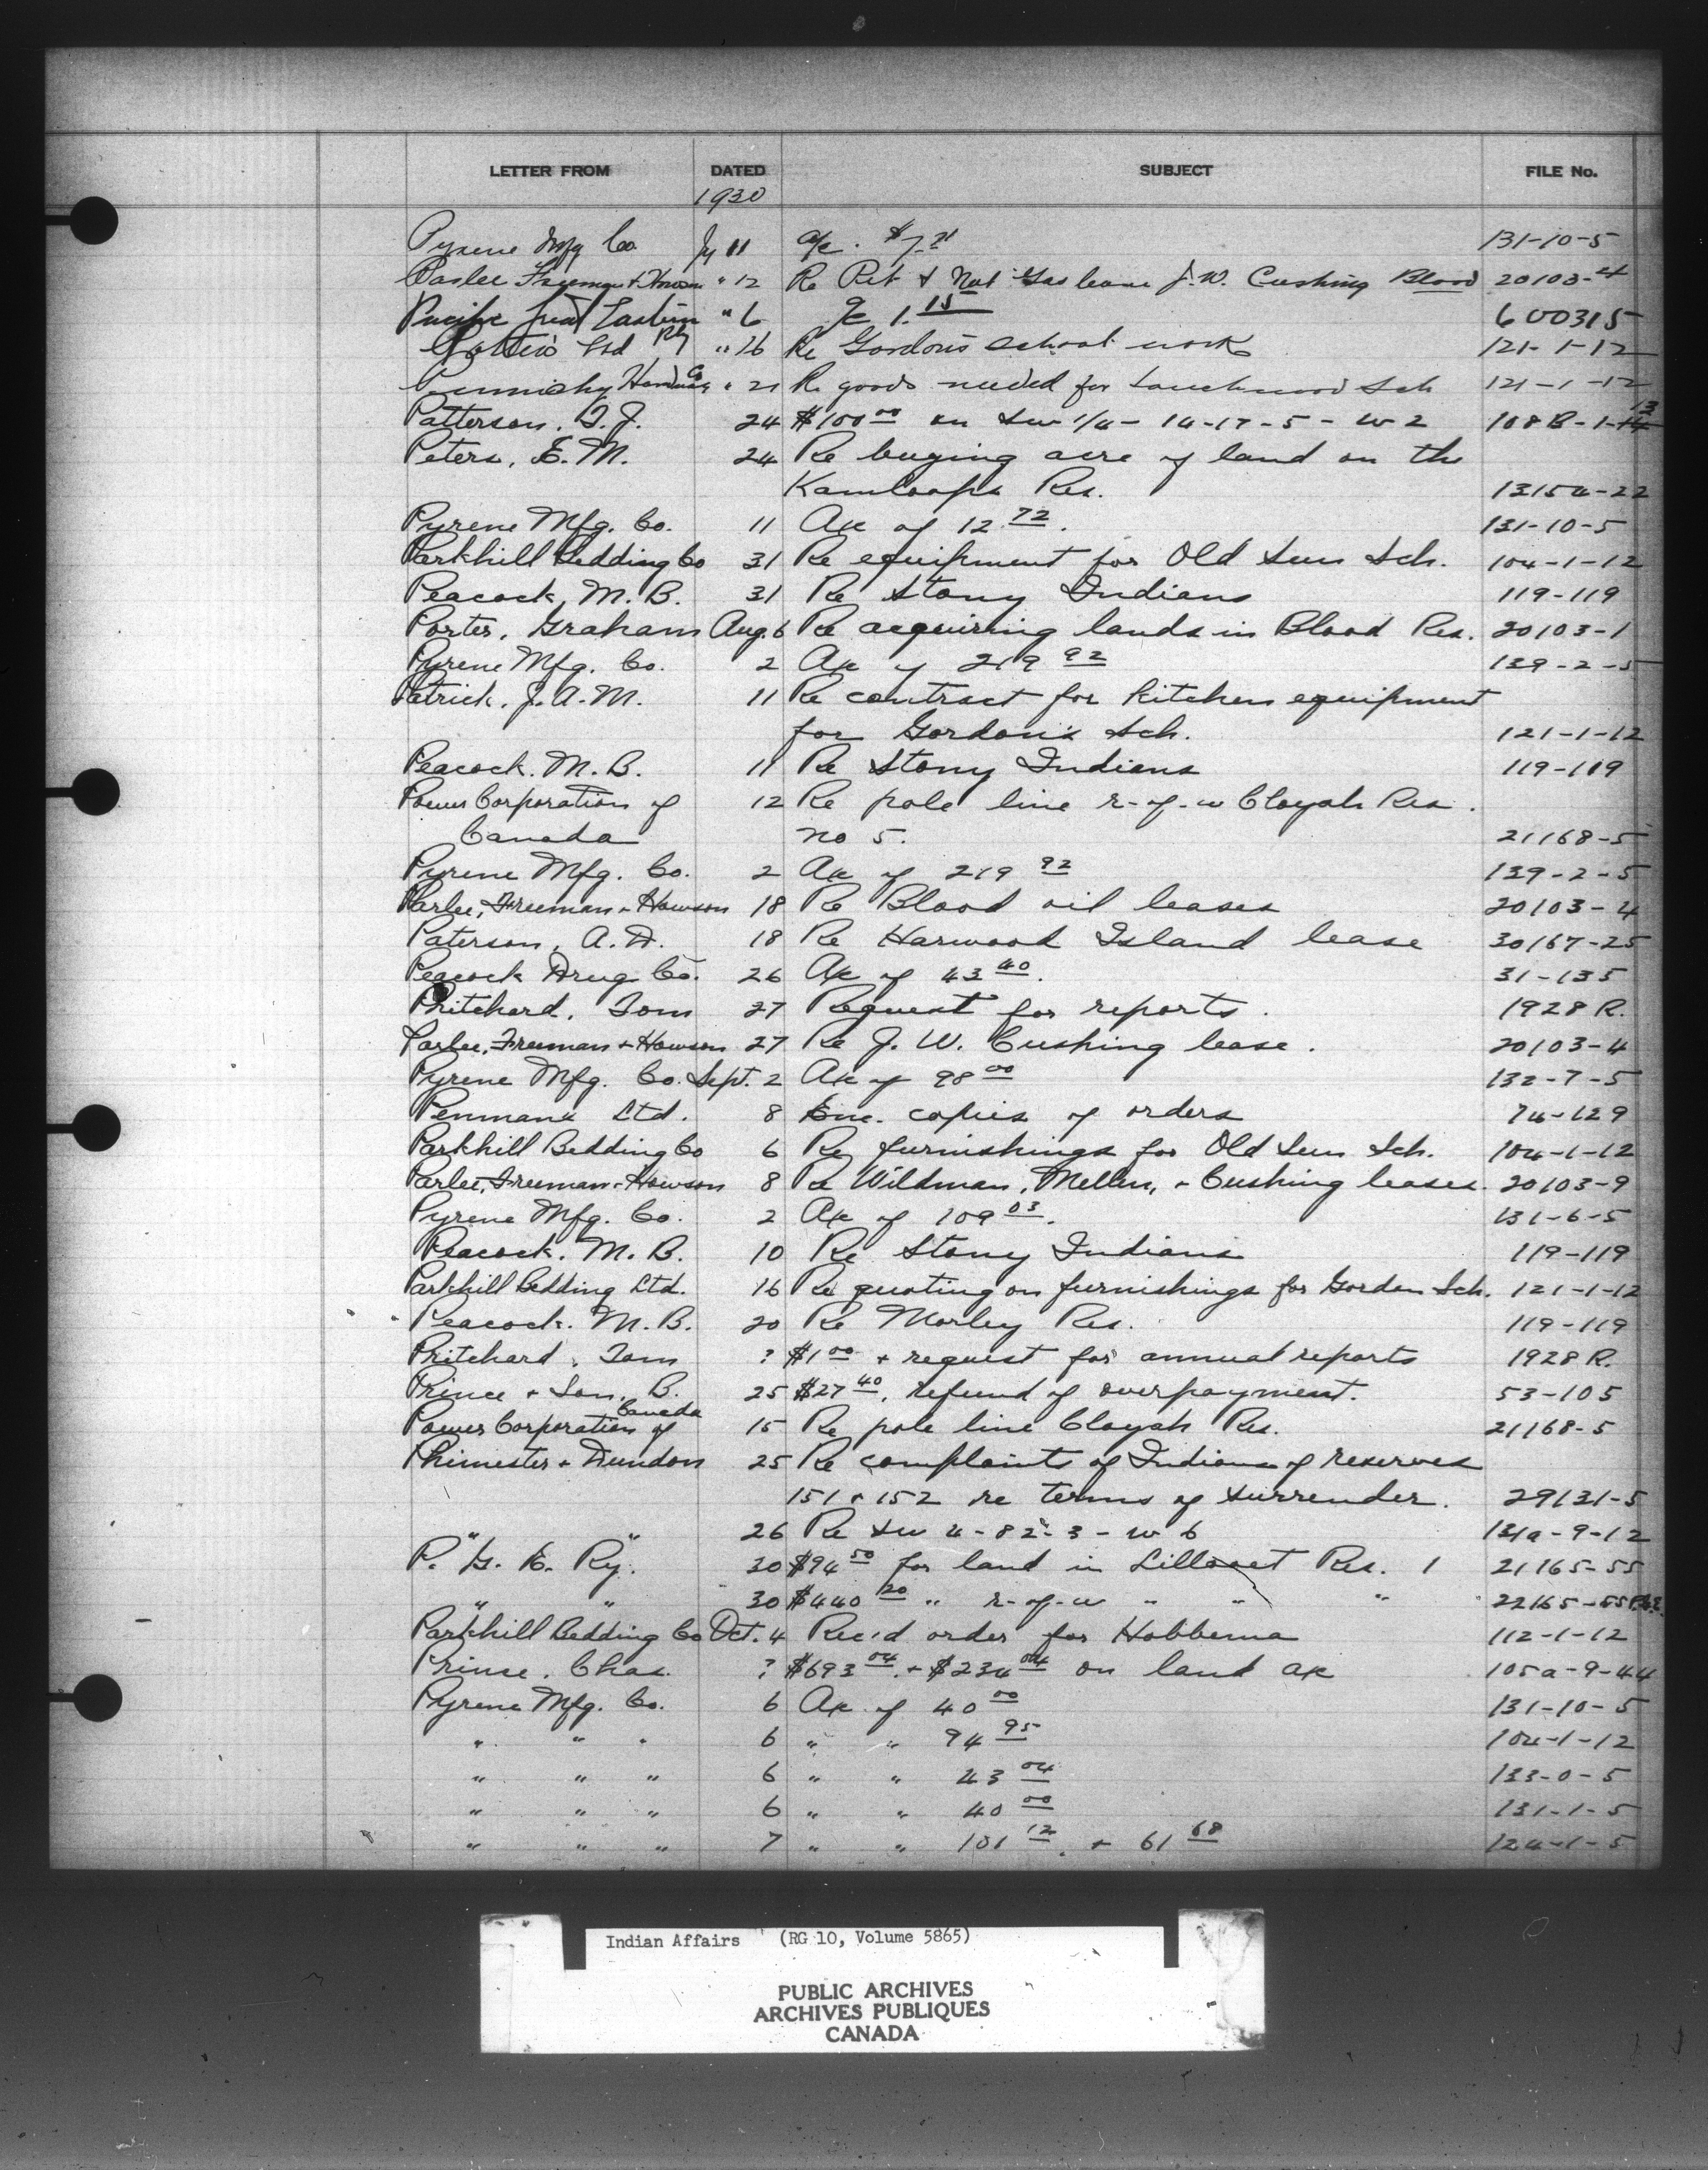 LETTER FROM DATED SUBJECT FILE No.
1930
Pyrene Mfg Co Jy 11 a/c. $7.71 131-10-5
Parlee Freeman & Howson " 12 Re Pet & Nat Gas lease J.W. Cushing Blood 20103-4
Pacific Great Eastern " 6 1.15 600315
Rly
Ltd " 16 Re Gordon's school work 121-1-12
Co
" 21 Re goods needed for Touchwood Sch 121-1-12
Patterson, T.J. 24 $100 00 on SW 1/4 - 14-17-5 - W 2 108B-1-13
Peters, E.M. 24 Re buying acre of land on the
Kamloops Res. 13154-22
Pyrene Mfg. Co. 11 Ac of 12 72. 131-10-5
Parkhill Bedding Co 31 Re equipment for Old Sun Sch. 104-1-12
Peacock, M.B. 31 Re Stony Indians 119-119
Porter, Graham Aug. 6 Re acquiring lands in Blood Res. 20103-1
Pyrene Mfg. Co. 2 Ac of 219 92 139-2-5
Patrick, J.A.M. 11 Re contract for kitchen equipment
for Gordon's Sch. 121-1-12
Peacock. M.B. 11 Re Stony Indians 119-119
Power Corporation of 12 Re pole line r-of-w Cloyah Res.
Canada no 5. 21168-5
Pyrene Mfg. Co. 2 Ac of 219 92 139-2-5
Parlee, Freeman + Howson 18 Re Blood oil leases 20103-4
Paterson, A.D. 18 Re Harwood Island lease 30167-25
Peacock Drug Co. 26 Ac of 43 40. 31-135
Pritchard, Tom 27 Request for reports. 1928 R.
Parlee, Freeman + Howson 27 Re J.W. Cushing lease. 20103-4
Pyrene Mfg. Co. Sept. 2 Ac of 98 00 132-7-5
Penmans Ltd. 8 Enc. copies of orders 74-129
Parkhill Bedding Co 6 Re furnishings for Old Sun Sch. 104-1-12
Parlee, Freeman + Howson 8 Re Wildman, Mellen, + Cushing leases. 20103-9
Pyrene Mfg. Co. 2 Ac of 109 03. 131-6-5
Peacock. M.B. 10 Re Stony Indians 119-119
Parkhill Bedding Ltd. 16 Re quoting on furnishings for Gordon Sch. 121-1-12
Peacock. M.B. 20 Re Morley Res. 119-119
Pritchard, Tom ? $1 00 + request for annual reports 1928 R.
Prince + Son, B. 25 $27 40, refund of overpayment. 53-105
Canada
Power Corporation of 15 Re pole line Cloyah Res. 21168-5
Phimester + Dundon 25 Re complaints of Indians of reserves
151 + 152 re terms of surrender. 29131-5
" " 26 Re SW 4-82-3-W 6 131a-9-12
P. G. E. Ry. 30 $94 50 for land in Lillooet Res. 1 21165-55
" " 30 $440 20 " r-of-w " " " 22165-55
Parkhill Bedding Co Oct. 4 Rec'd order for Hobbema 112-1-12
Prince, Chas. ? $693 04 + $234 04 on land ac 105a-9-44
Pyrene Mfg. Co. 6 Ac of 40 00 131-10-5
" " " 6 " " 94 95 104-1-12
" " " 6 " " 43 04 133-0-5
" " " 6 " " 40 00 131-1-5
" " " 7 " " 101 12. + 61 68 124-1-5
Indian Affairs (RG 10, Volume 5865)
PUBLIC ARCHIVES
ARCHIVES PUBLIQUES
CANADA